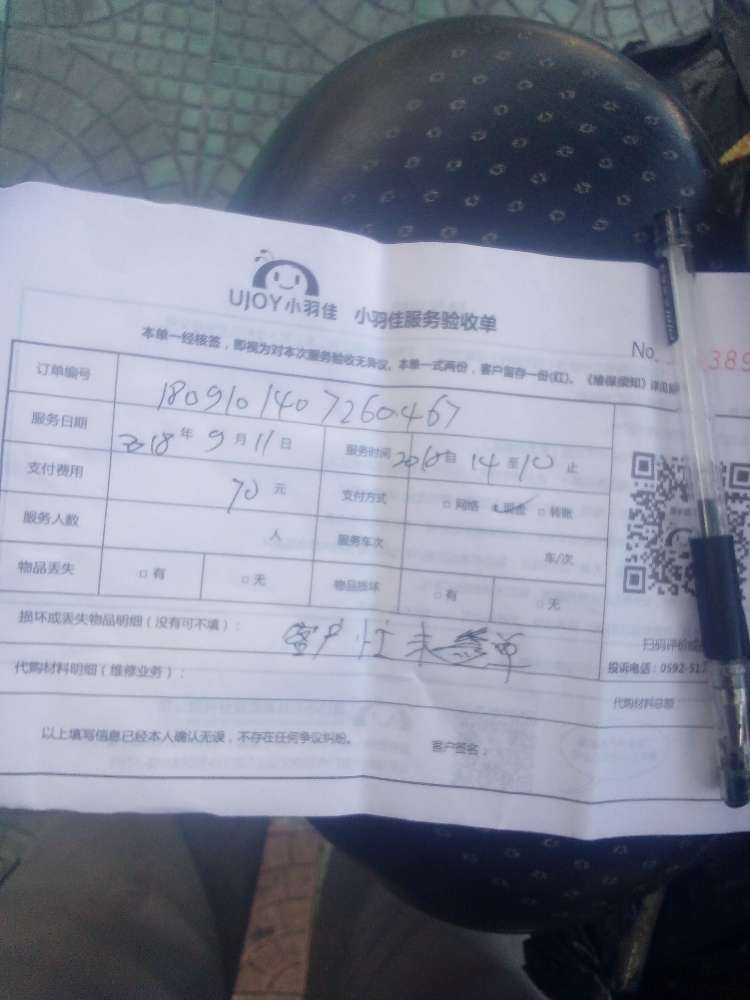 UJOY小羽佳 小羽佳服务验收单
No. 389
本单一经核签,即视为对本次服务验收无异议。本单一式两份,客户留存一份(红)。《维保须知》详见
订单编号 1809101407260467
服务日期 2018年9月11日 服务时间 自14至10止
支付费用 70元 支付方式 □网络 现金 □转账
服务人数 人 服务车次 车/次
物品丢失 □有 □无 物品损坏 □有 □无
损坏或丢失物品明细(没有可不填): 客户忙未签单
扫码评价或
投诉电话:0592-51
代购材料明细(维修业务): 代购材料总额:
以上填写信息已经本人确认无误,不存在任何争议纠纷。 客户签名: